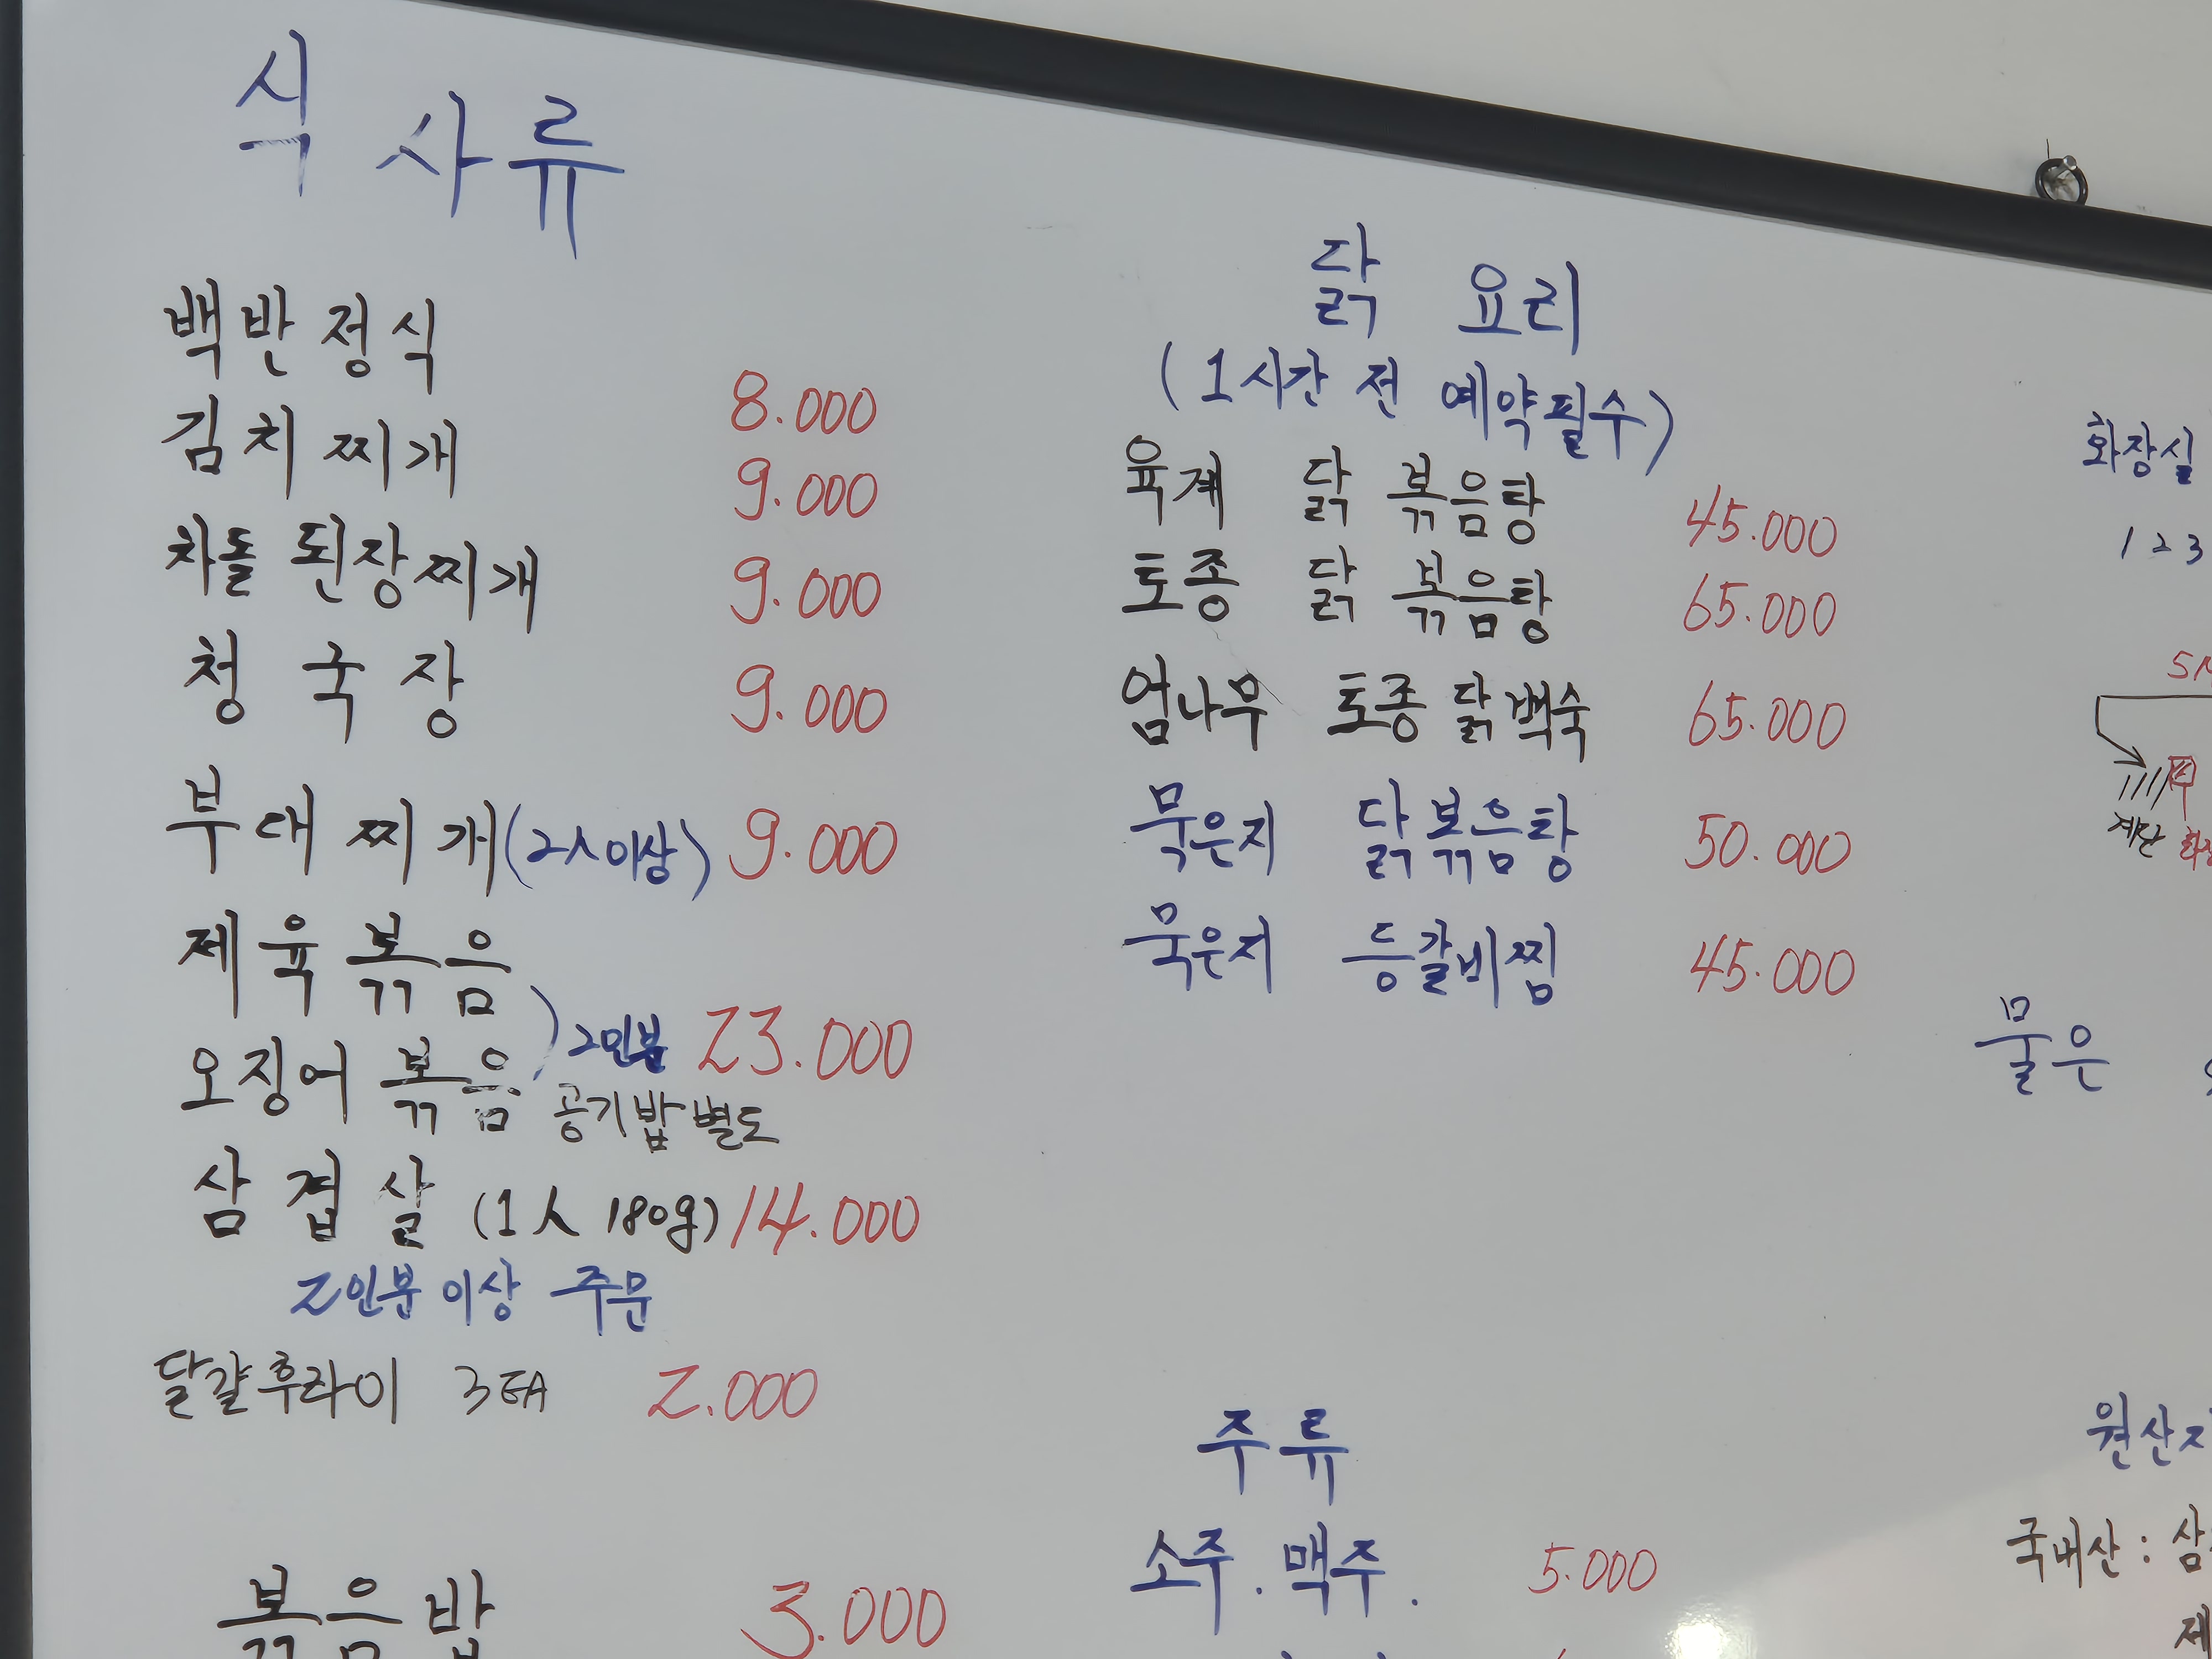 식사류
백반정식 8.000
김치찌개 9.000
차돌 된장찌개 9.000
청국장 9.000
부대찌개(2人이상) 9.000
제육볶음
오징어볶음 ) 2인분 23.000
공기밥별도
삼겹살 (1人 180g) 14.000
2인분이상 주문
달걀후라이 3EA 2.000
볶음밥 3.000
닭 요리
(1시간 전 예약필수)
육계 닭 볶음탕 45.000
토종 닭 볶음탕 65.000
엄나무 토종닭백숙 65.000
묵은지 닭볶음탕 50.000
묵은지 등갈비찜 45.000
주류
소주.맥주. 5.000
화장실
123
계단
물은
원산지
국내산: 삼
제